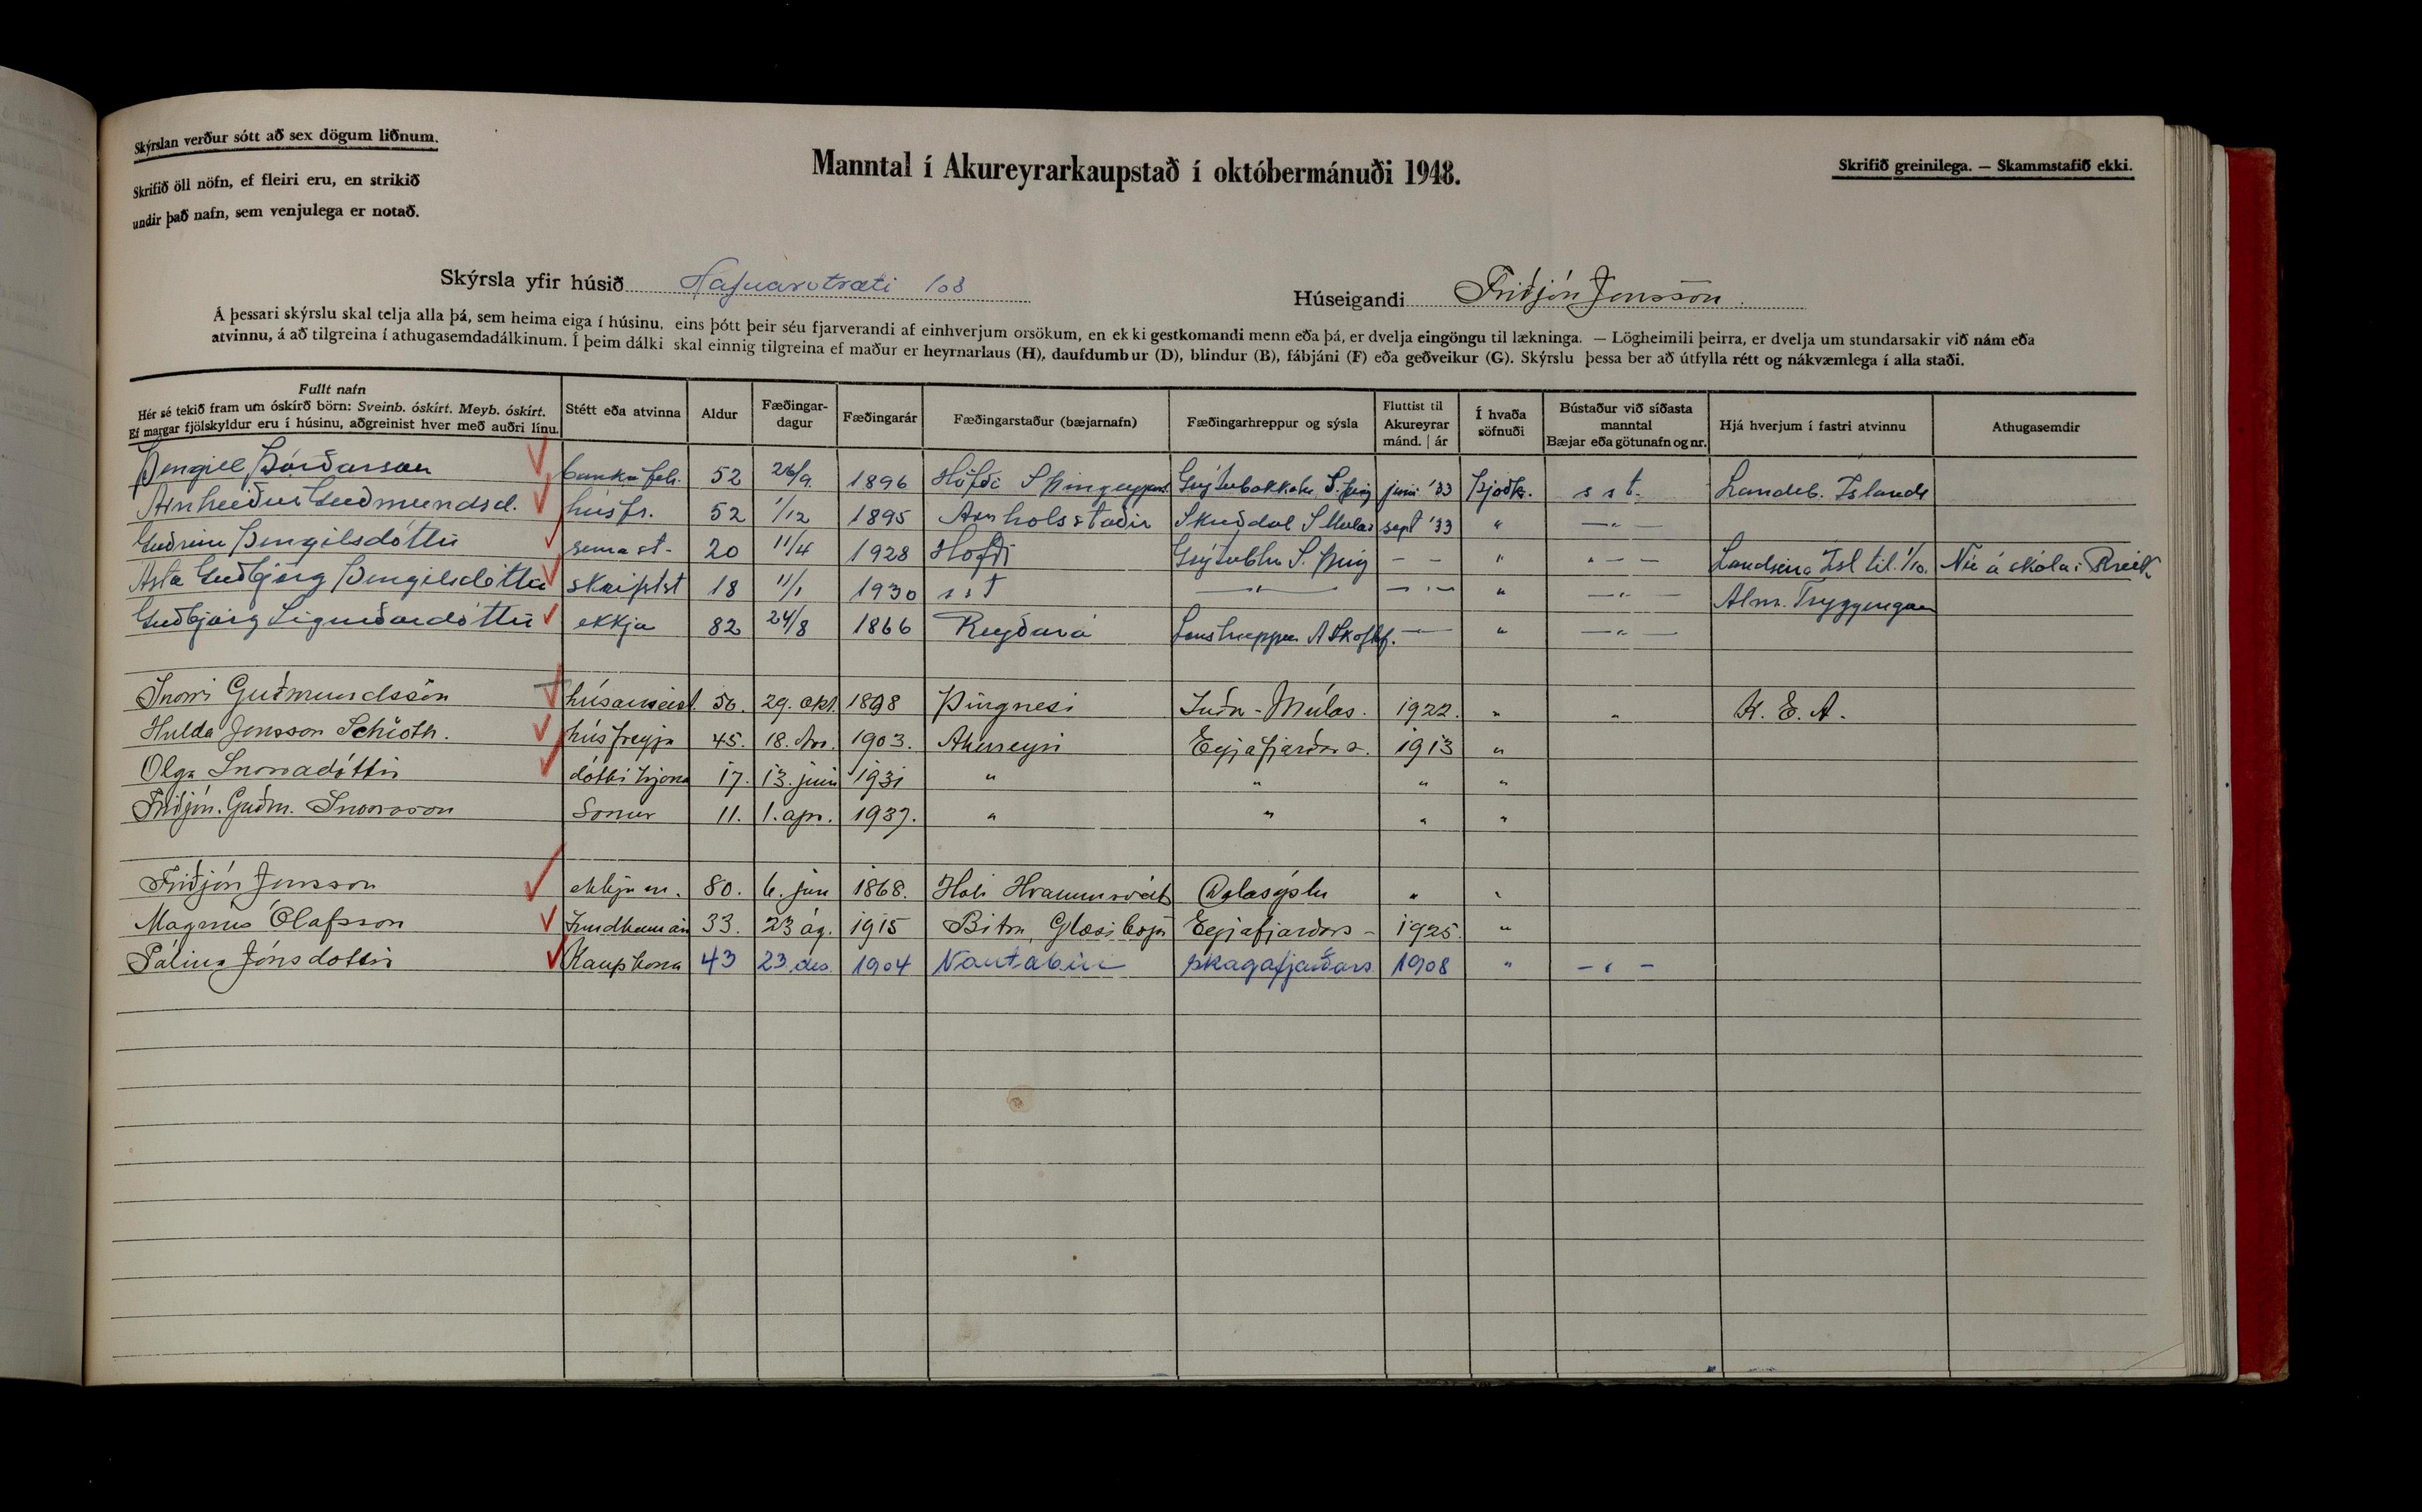 Skýrslan verður sótt að sex dögum liðnum.
Skrifið öll nöfn, ef fleiri eru, en strikið
undir það nafn, sem venjulega er notað.
Manntal í Akureyrarkaupstað í októbermánuði 1948.
Skrifið greinilega. — Skammstafið ekki.
Skýrsla yfir húsið Hafnarstræti 108
Húseigandi Friðjón Jensson
Á þessari skýrslu skal telja alla þá, sem heima eiga í húsinu, eins þótt þeir séu fjarverandi af einhverjum orsökum, en ekki gestkomandi menn eða þá, er dvelja eingöngu til lækninga. — Lögheimili þeirra, er dvelja um stundarsakir við nám eða
atvinnu, á að tilgreina í athugasemdadálkinum. Í þeim dálki skal einnig tilgreina ef maður er heyrnarlaus (H), daufdumbur (D), blindur (B), fábjáni (F) eða geðveikur (G). Skýrslu þessa ber að útfylla rétt og nákvæmlega í alla staði.
Fullt nafn
Hér sé tekið fram um óskírð börn: Sveinb. óskírt. Meyb. óskírt.
Ef margar fjölskyldur eru í húsinu, aðgreinist hver með auðri línu.
Stétt eða atvinna
Aldur
Fæðingar-
dagur
Fæðingarár
Fæðingarstaður (bæjarnafn)
Fæðingarhreppur og sýsla
Fluttist til
Akureyrar
mánd. | ár
Í hvaða
söfnuði
Bústaður við síðasta
manntal
Bæjar eða götunafn og nr.
Hjá hverjum í fastri atvinnu
Athugasemdir
Þengill Þórðarson 52 26/9 1896 Höfði S Þingeyjars. Grýtubakkahr. S. Þing júni '33 Þjóðk. s st. Landsb. Islands
Arnheiður Guðmundsd. húsfr. 52 1/12 1895 Arnholsstaðir Skriðdal S Mulas sept '33 " — " —
Guðrún Þengilsdóttir 20 11/4 1928 Höfði Grýtubhr S. Þing — — " " — — Landsína Isl til 1/10. Nú á skóla í Rvík
Asta Guðbjörg Þengilsdóttir skriftst 18 11/1 1930 s s t — " — — " — " — " — Alm. Tryggingar
Guðbjörg Sigurðardóttir ekkja 82 24/8 1866 Reyðará Lonshreppur A Skaftaf. — " — " —
Snorri Guðmundsson húsameist. 50. 29. okt. 1898 Þingnesi Suðr-Múlas. 1922. " " K. E. A.
Hulda Jensson Schiöth. húsfreyja 45. 18. 1903. Akureyri Eyjafjarðars. 1913 "
Olga Snorradóttir dóttir hjóna 17. 13. júní 1931 " " " "
Friðjón. Guðm. Snorrason Sonur 11. 1. apr. 1937. " " " "
Friðjón Jensson ekkjum. 80. 6. jún 1868. Hóli Hvammsveit Dalasýslu " "
Magnús Ólafsson 33. 23 ág. 1915 Bitru, Glæsibæjar Eyjafjarðars - 1925. "
Pálína Jónsdóttir Kaupkona 43 23. des. 1904 Nautabúi skagafjarðars 1908 " — " —